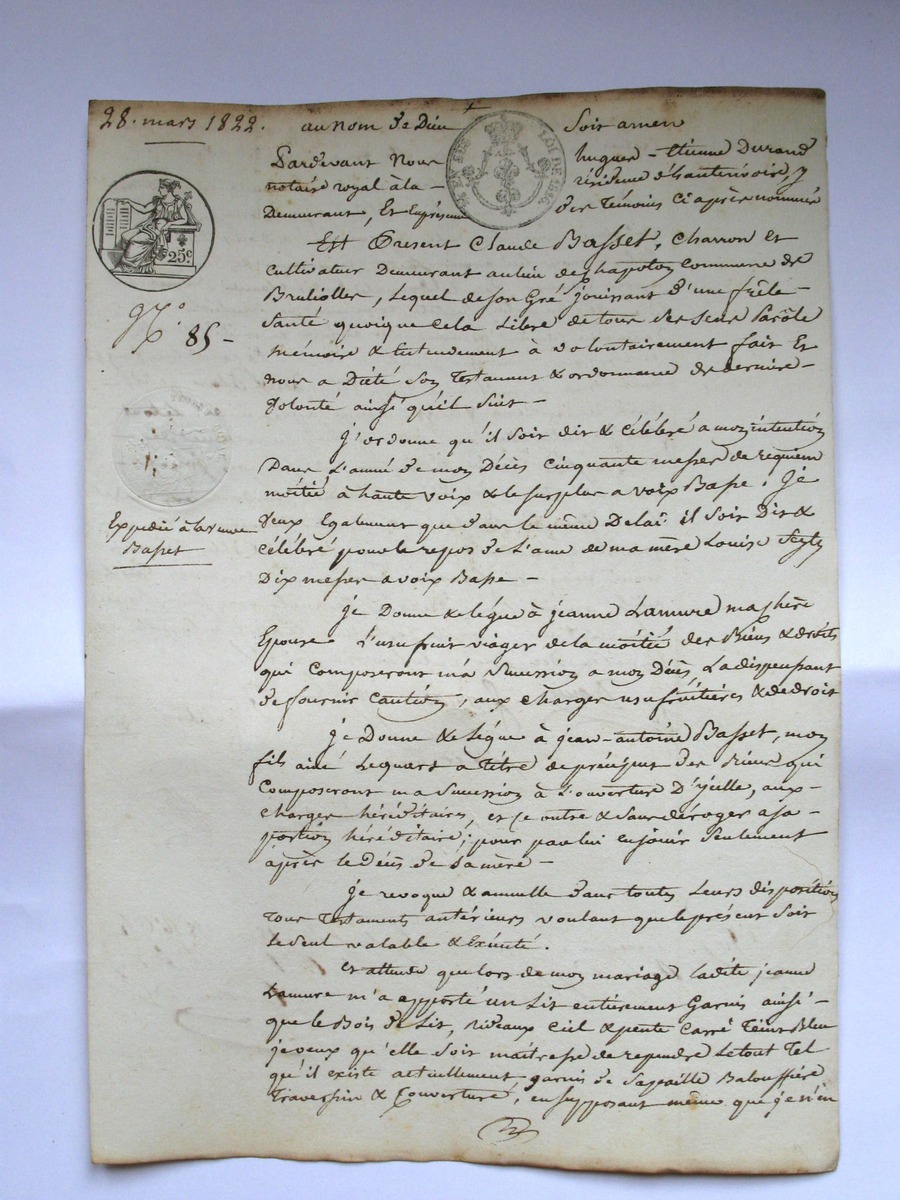 28. mars 1822. au nom de Dieu Soit amen
Pardevant Nous hugues-Etienne Durand
notaire royal à la résidence d'hauterivoire, y
Demeurant, Et En présence des Témoins Ci après nommés
LOI DE 1816.
25c
Est Présent Claude Basset, Charron et
Cultivateur Demeurant au lieu de chapoton Commune de
Brulioller, Lequel de son Gré jouissant d'une frêle
Santé quoique Cela Libre de tous ses sens Parôle
mémoire & Entendement à volontairement fait Et
nous a Dicté Son Testament & ordonnance de dernière
Volonté ainsi qu'il Suit -
N.o 85 -
J'ordonne qu'il Soit dit & Célébré a mon intention
Dans L'année de mon Décès Cinquante messes de requiem
moitié à haute voix & le surplus a voix Basse; Je
Veux Egalement que dans le même Delai il Soit Dit &
Célébré pour le repos de L'ame de ma mère Louise
Dix messes a voix Basse -
Expédié à la veuve
Basset
je Donne & légue à jeanne Lamure ma chère
Epouse L'usufruit viager de la moitié des Biens & droits
qui Composeront ma Succession a mon Décès, La dispensant
de fournir Caution, aux charges usufruitières & de droit
Je Donne & légue à jean-antoine Basset, mon
fils ainé Le quart a Titre de préciput des Biens qui
Composeront ma Succession à L'ouverture D'ycelle, aux
charges héréditaires, et ce outre & Sans déroger a sa
portion héréditaire; pour par lui En jouir Seulement
après le Décès de Sa mère -
Je revoque & annulle dans toutes Leurs dispositions
Tous Testaments antérieurs voulant que le présent Soit
Le Seul valable & Exécuté.
Et attendu que lors de mon mariage ladite jeanne
Lamure m'a apporté un Lit entièrement Garni ainsi
que le Bois de Lit, Rideaux Ciel & pente Carré Teint Bleu
je veux qu'elle Soit maitresse de reprendre Le tout Tel
qu'il existe actuellement garni de Sa paille Balouffière
Traversin & Couverture, en Supposant même que je n'en